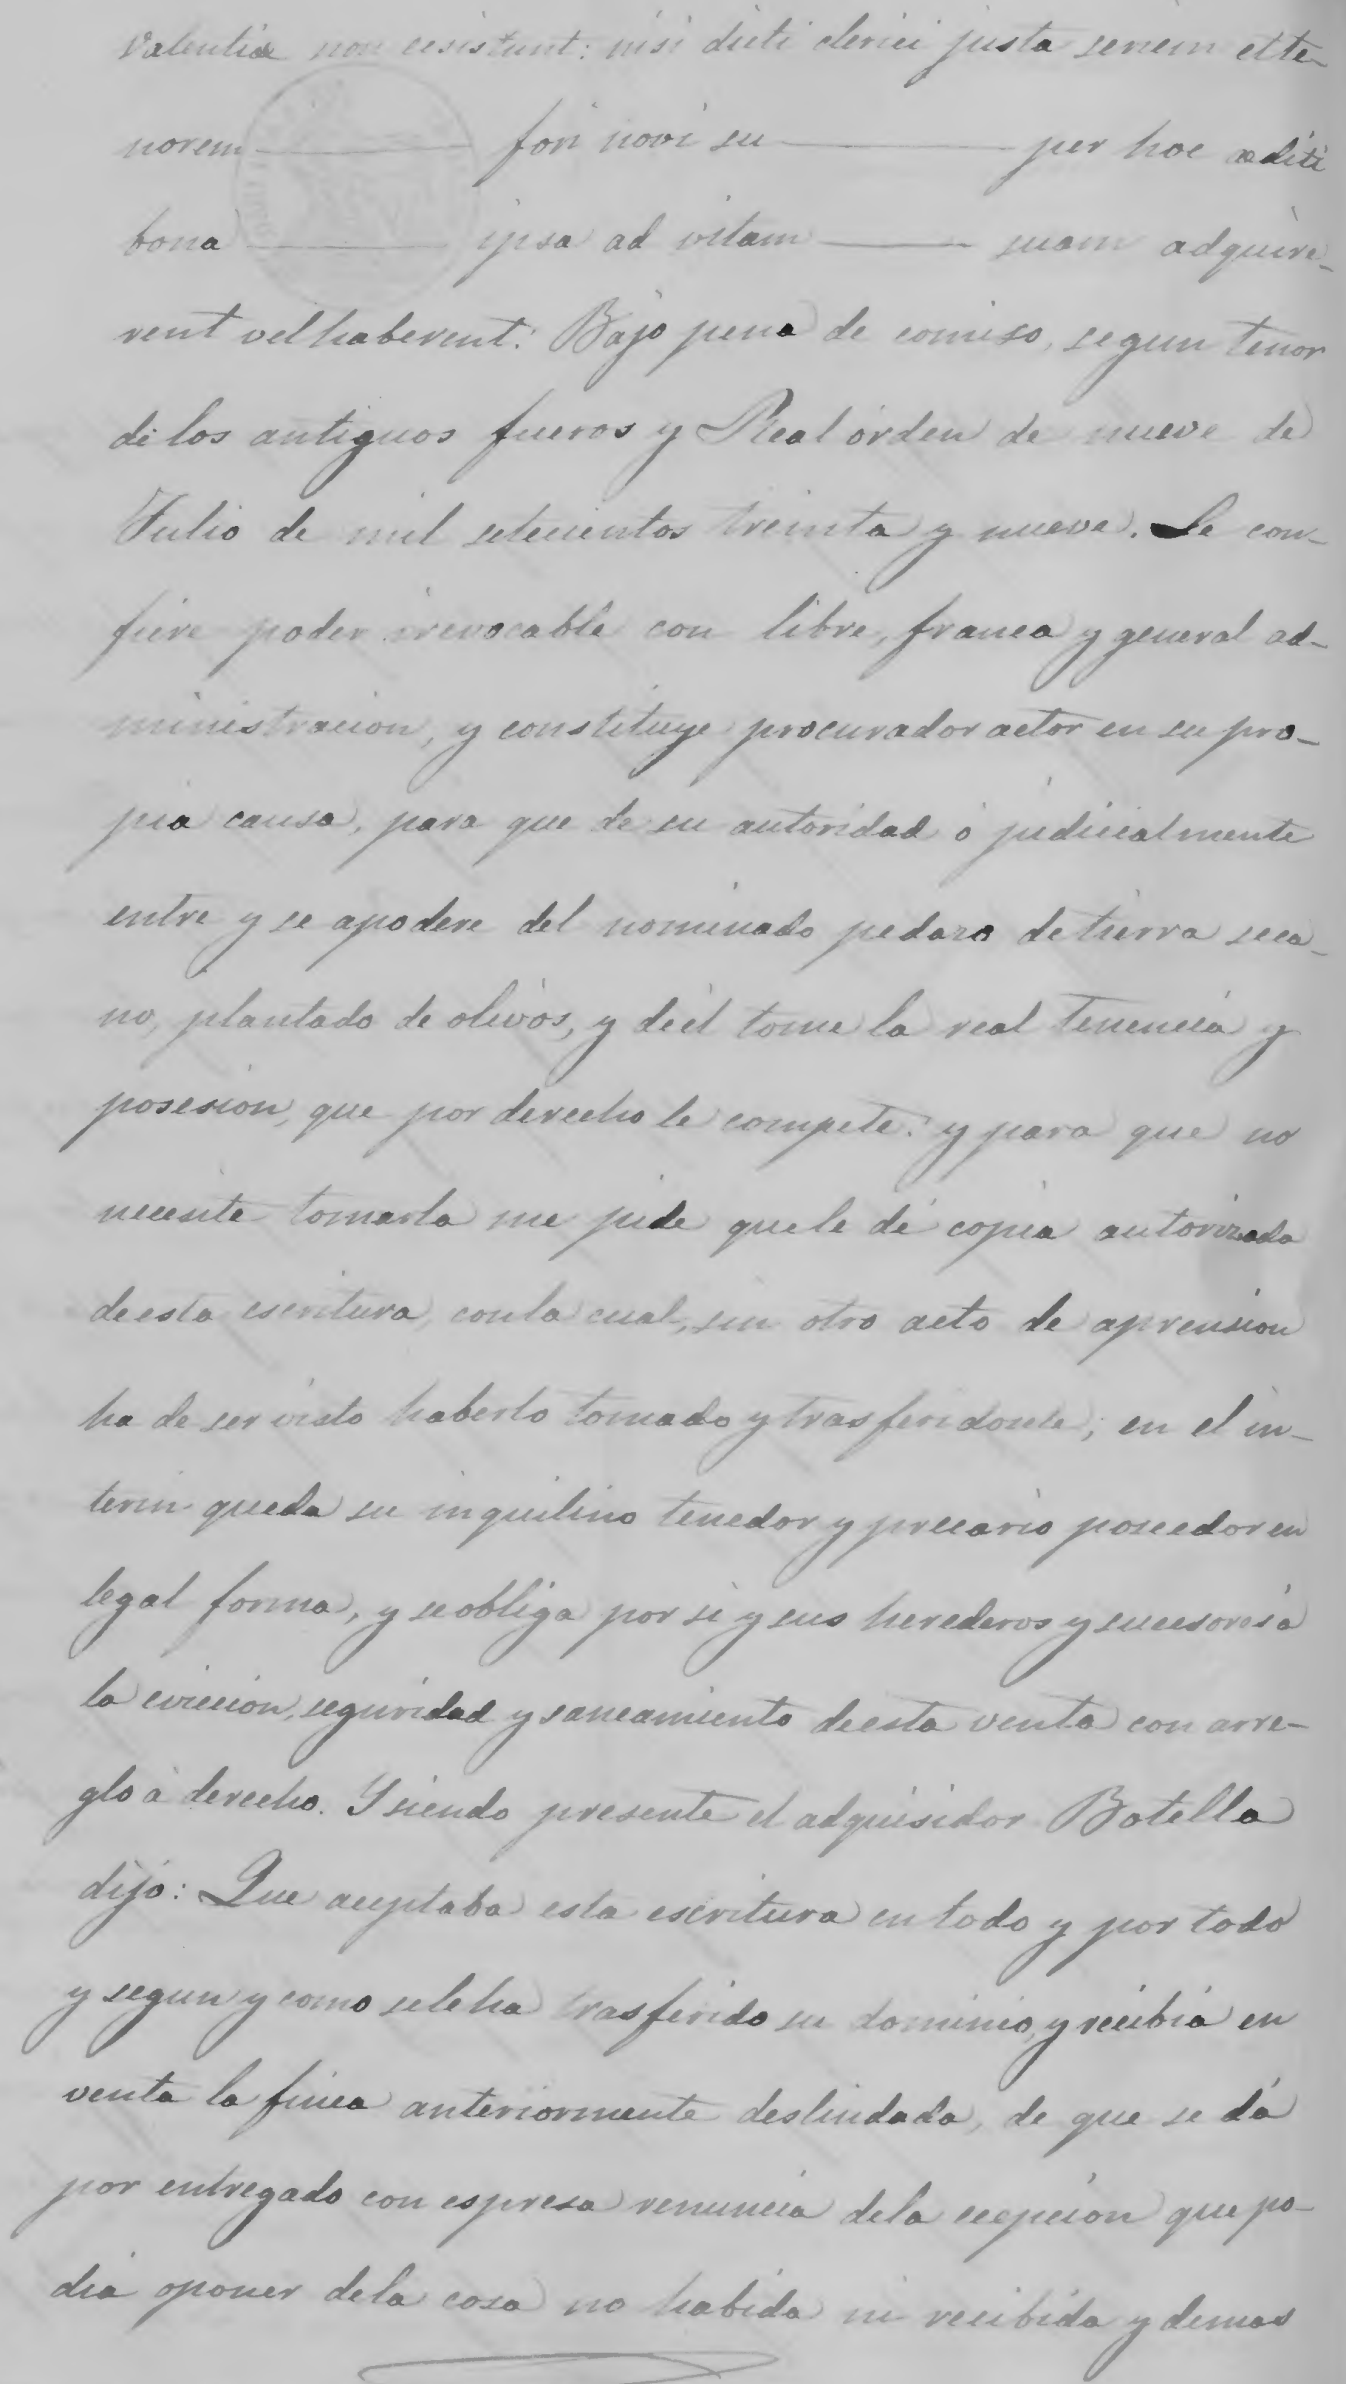 Valentiæ non ecsistunt: nisi dicti clerici justa seriem et te-
norem ——— fori novi su ——— per hoc æditi
bona ——— ipsa ad vitam ——— suam adquire-
rent vel haberent: Bajo pena de comiso, segun tenor
de los antiguos fueros y Real órden de nueve de
Julio de mil setecientos treinta y nueve. Le con-
fiere poder irevocable con libre, franca y general ad-
ministracion, y constituye procurador actor en su pro-
pia causa, para que de su autoridad ó judicialmente
entre y se apodere del nominado pedazo de tierra seca-
no, plantado de olivos, y de él tome la real tenencia y
posesion, que por derecho le compete: y para que no
necesite tomarla me pide que le dé copia autorizada
de esta escritura, con la cual, sin otro acto de aprension
ha de ser visto haberlo tomado y trasferidosele; en el in-
terin queda su inquilino tenedor y precario poseedor en
legal forma, y se obliga por si y sus herederos y sucesores á
la eviccion, seguridad y saneamiento de esta venta con arre-
glo á derecho. Y siendo presente el adquisidor Botella
dijo: Que aceptaba esta escritura en todo y por todo
y segun y como se le ha trasferido su dominio, y recibia en
venta la finca anteriormente deslindada, de que se dá
por entregado con espresa renuncia de la ecepcion que po-
dia oponer de la cosa no habida ni recibida y demas